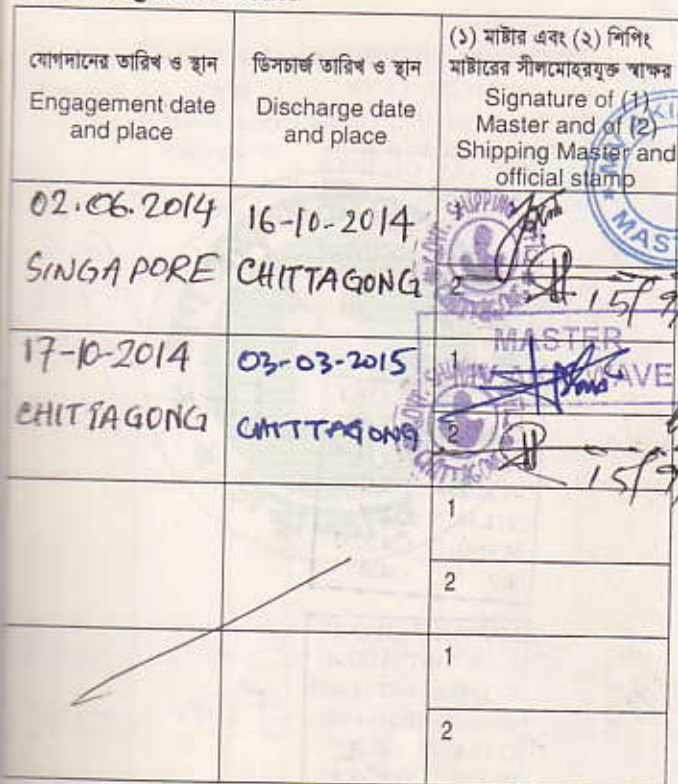 যোগদানের তারিখ ও স্থান
Engagement date
and place
ডিসচার্জ তারিখ ও স্থান
Discharge date
and place
(১) মাষ্টার এবং (২) শিপিং
মাষ্টারের সীলমোহরযুক্ত স্বাক্ষর
Signature of (1)
Master and of (2)
Shipping Master and
official stamp
02.06.2014
SINGAPORE
16-10-2014
CHITTAGONG
SHIPPING
CHITTAGONG
MAST
2
17-10-2014
CHITTAGONG
03-03-2015
CHITTAGONG
MASTER
WAVE
1
2
CHITTAGONG
1
2
1
2